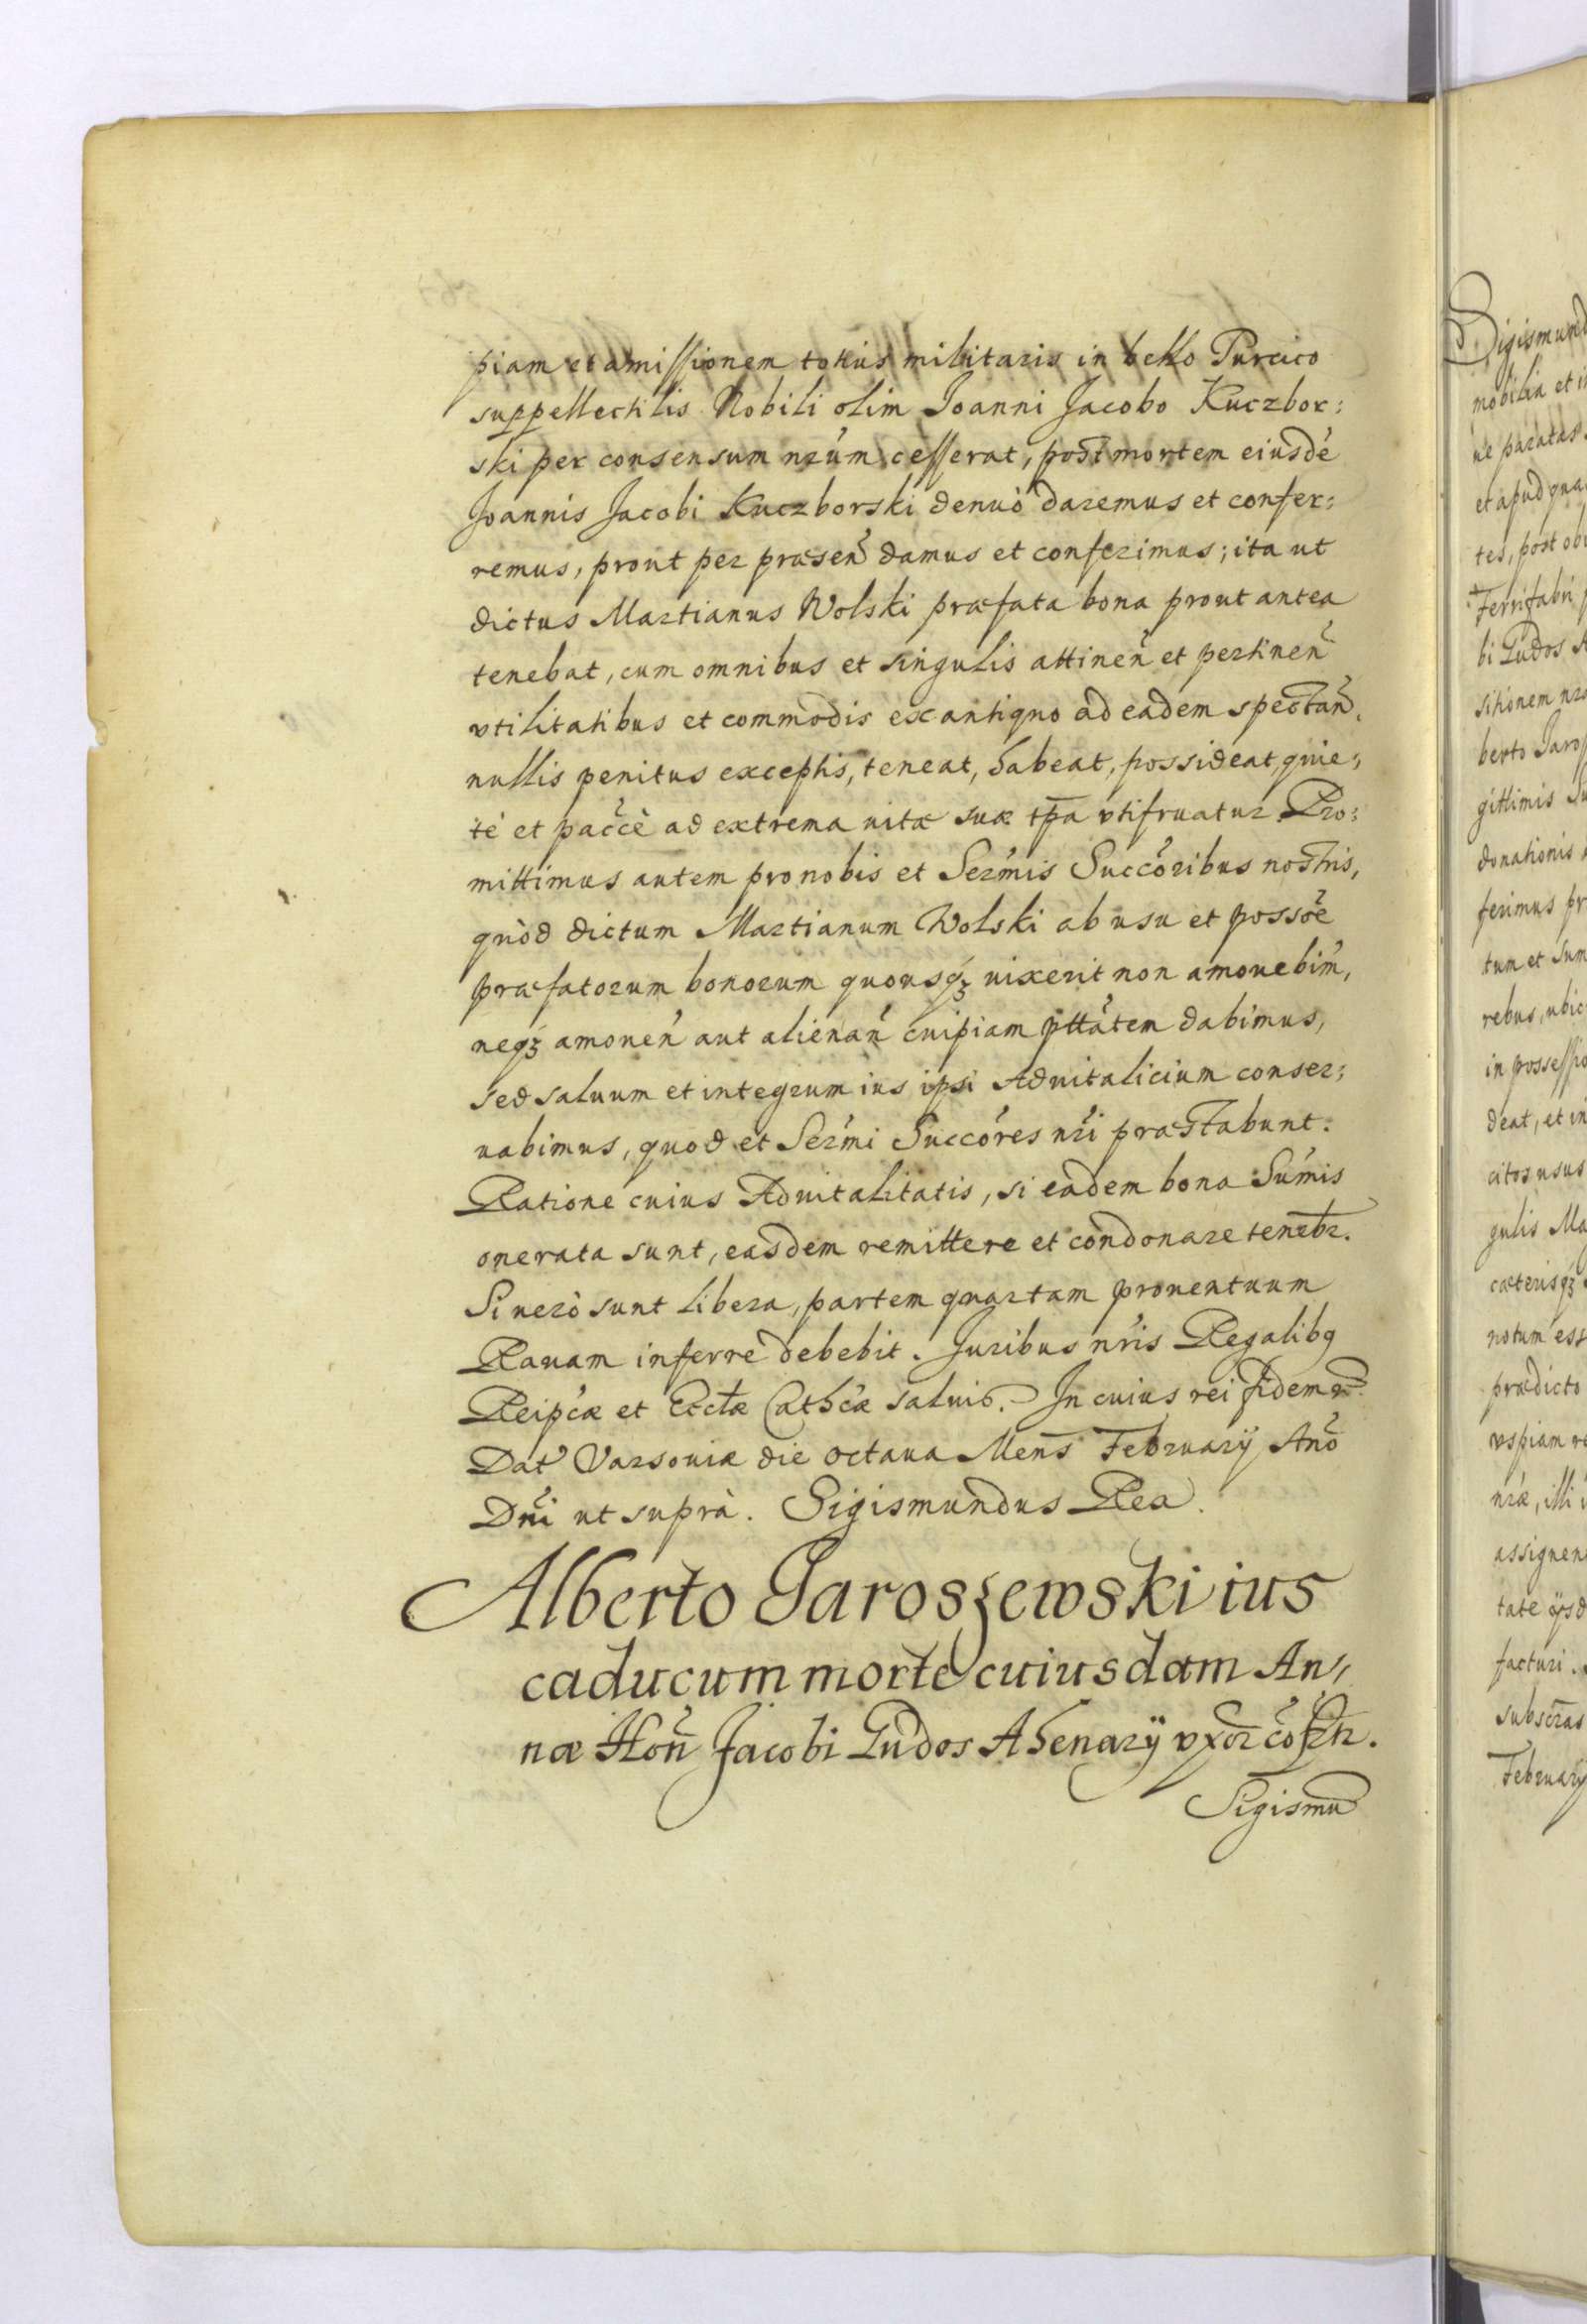 piam et amissionem totius militaris in bello Turcico
suppellectilis Nobili olim Joanni Jacobo Kuczbor:
ski per consensum nrúm cesserat, post mortem eiusdé
Joannis Jacobi Kuczborski denuò daremus et confer:
remus, prout per præsen̄ damus et conferimus; ita ut
dictus Martianus Wolski præfata bona prout antea
tenebat, cum omnibus et singulis attinen̄ et pertinen̄
vtilitatibus et commodis ex antiquo ad eadem spectan̄.
nullis penitus exceptis, teneat, habeat, possideat, quie:
té et paccè ad extrema uitæ suæ tp̄a vtifruatur. Pro:
mittimus autem pro nobis et Sermis Succoribus nostris,
quòd dictum Martianum Wolski ab usu et possoe
præfatorum bonorum quousqȝ uixerit non amouebim,
neqȝ amouen̄ aut alienan̄ cuipiam pttatem dabimus,
sed saluum et integrum ius ipsi Aduitalicium conser:
uabimus, quod et Sermi Succores nri præstabunt.
Ratione cuius Aduitalitatis, si eadem bona Sumis
onerata sunt, easdem remittere et condonare tenebr.
Si uerò sunt libera, partem quartam prouentuum
Rauam inferre debebit. Juribus nris Regalibq
Reipcæ et Ecclæ Cathcæ saluis. In cuius rei fidem
Dat Varsouiæ die octaua Mens Februarÿ Ano
Dni ut suprà. Sigismundus Rex.
Alberto Jaroszewski ius
caducum morte cuiusdam An,,
næ Hon̄ Jacobi Ludos Ahenarÿ vxor
Sigismu
Sigismund
mobilia et i
ue paratas
et apud qua
tes, post ob
Ferrifabri
bi Ludos
sitionem nr
berto Jaro
gittimis Su
donationis
ferimus pr
tum et Sum
rebus, ubic
in possessio
deat, et in
citos usus
gulis Ma
cæterisqȝ
notum ess
prædicto
vspiam re
nræ, illi
assignen
tate
facturi.
subscras
Februarÿ